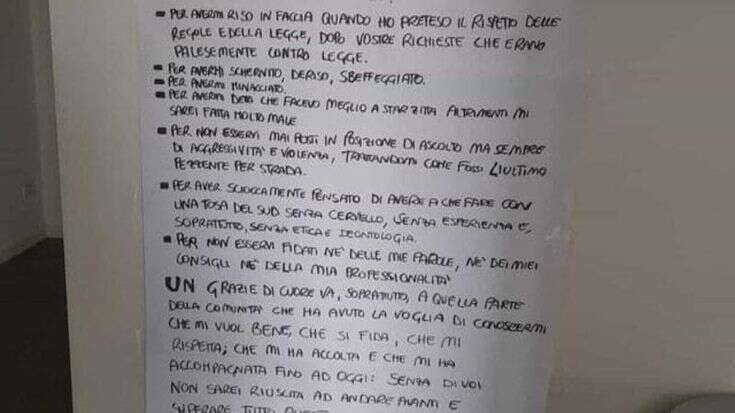 - PER AVERMI RISO IN FACCIA QUANDO HO PRETESO IL RISPETTO DELLE
REGOLE E DELLA LEGGE, DOPO VOSTRE RICHIESTE CHE ERANO
PALESEMENTE CONTRO LEGGE.
- PER AVERMI SCHERNITO, DERISO, SBEFFEGGIATO.
- PER AVERMI MINACCIATO.
- PER AVERMI DETO CHE FACEVO MEGLIO A STAR ZITTA ALTRIMENTI MI
SAREI FATTA MOLTO MALE
- PER NON ESSERVI MAI POSTI IN POSIZIONE DI ASCOLTO MA SEMPRE
DI AGGRESSIVITA' E VIOLENZA, TRATTANDOMI COME FOSSI L'ULTIMO
PEZZENTE PER STRADA.
- PER AVER SCIOCCAMENTE PENSATO DI AVERE A CHE FARE CON
UNA TOSA DEL SUD SENZA CERVELLO, SENZA ESPERIENZA E,
SOPRATTUTTO, SENZA ETICA E DEONTOLOGIA.
- PER NON ESSERVI FIDATI NE' DELLE MIE PAROLE, NE' DEI MIEI
CONSIGLI NE' DELLA MIA PROFESSIONALITA'
UN GRAZIE DI CUORE VA, SOPRATUTTO, A QUELLA PARTE
DELLA COMUNITA' CHE HA AVUTO LA VOGLIA DI CONOSCERMI
CHE MI VUOL BENE, CHE SI FIDA, CHE MI
RISPETTA; CHE MI HA ACCOLTA E CHE MI HA
ACCOMPAGNATA FINO AD OGGI: SENZA DI VOI
NON SAREI RIUSCITA AD ANDARE AVANTI E
SUPERARE TUTTO